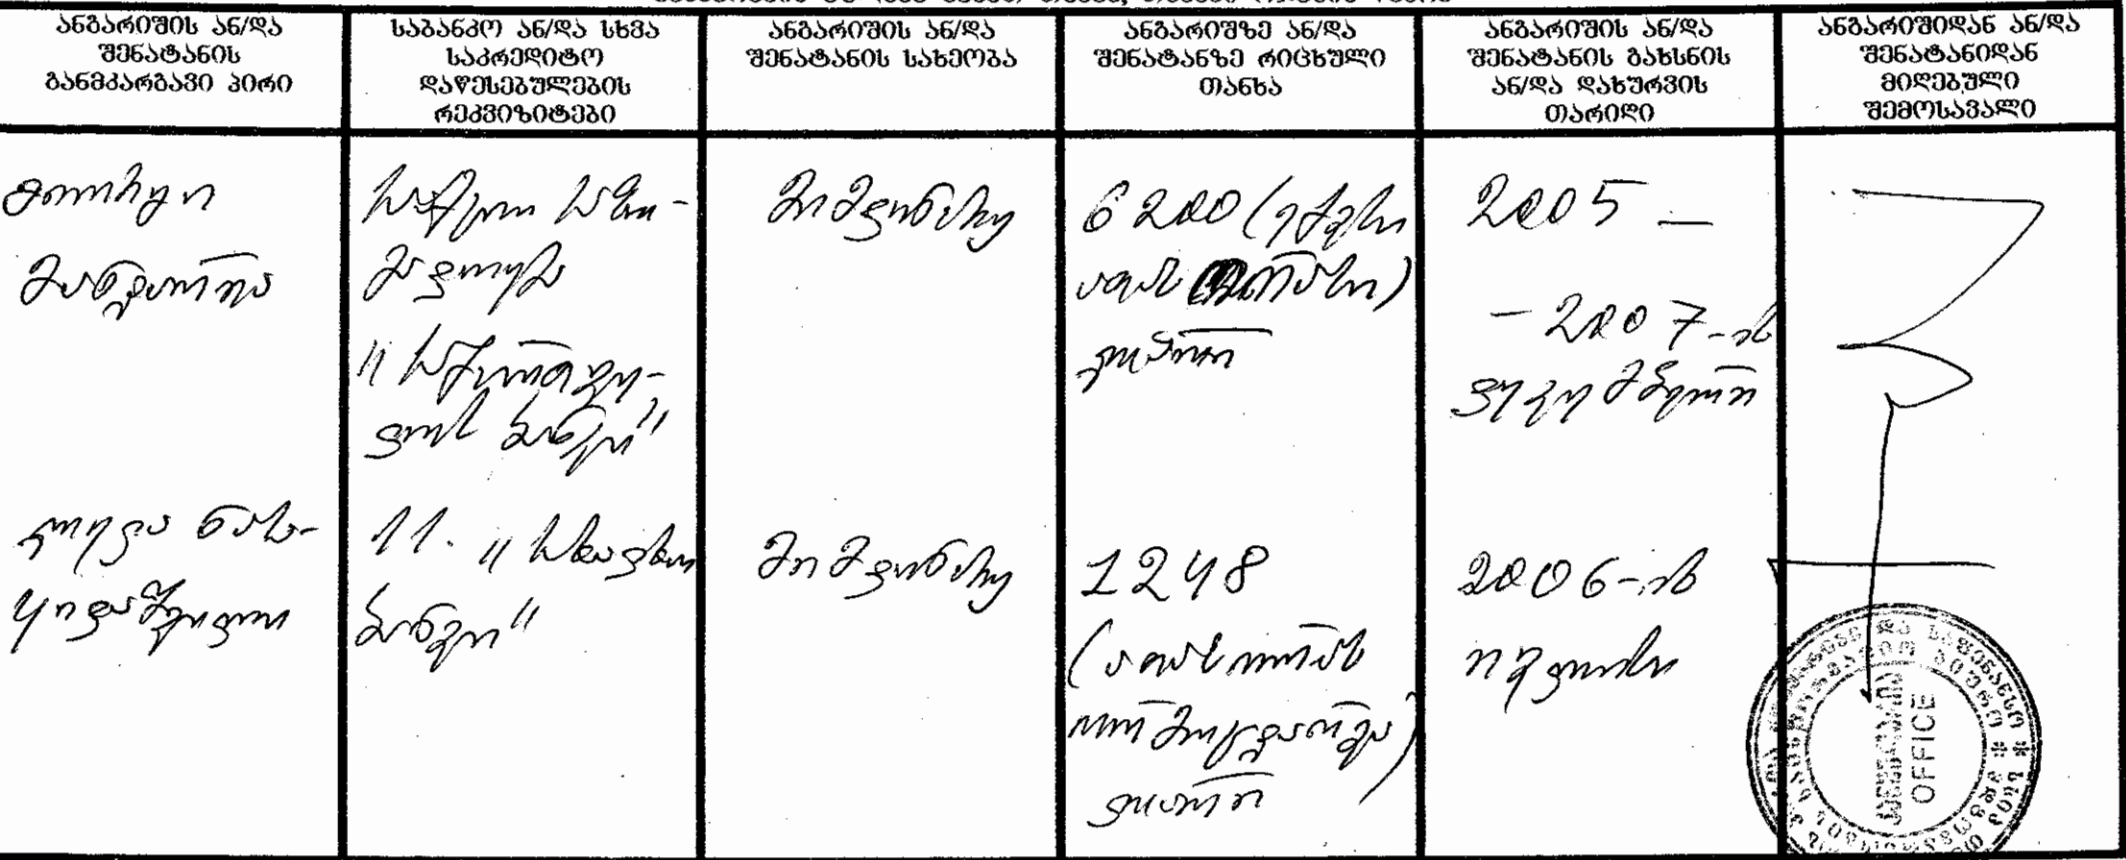 ანგარიშის ან/და
შენატანის
განმკარგავი პირი
საბანკო ან/და სხვა
საკრედიტო
დაწესებულების
რეკვიზიტები
ანგარიშის ან/და
შენატანის სახეობა
ანგარიშზე ან/და
შენატანზე რიცხული
თანხა
ანგარიშის ან/და
შენატანის გახსნის
ან/და დახურვის
თარიღი
ანგარიშიდან ან/და
შენატანიდან
მიღებული
შემოსავალი
გიორგი
სააქციო საზო-
გადოება
„საქართვე-
ლოს ბანკი"
მიმდინარე
6200 (ექვსი
ათას ორასი)
ლარი
2005 –
– 2007-ის
დეკემბერი
ნანა-
ს.ს. „
ბანკი"
მიმდინარე
1248
(ათას ორას
ორმოცდარვა)
ლარი
2006-ის
ივლისი
OFFICE